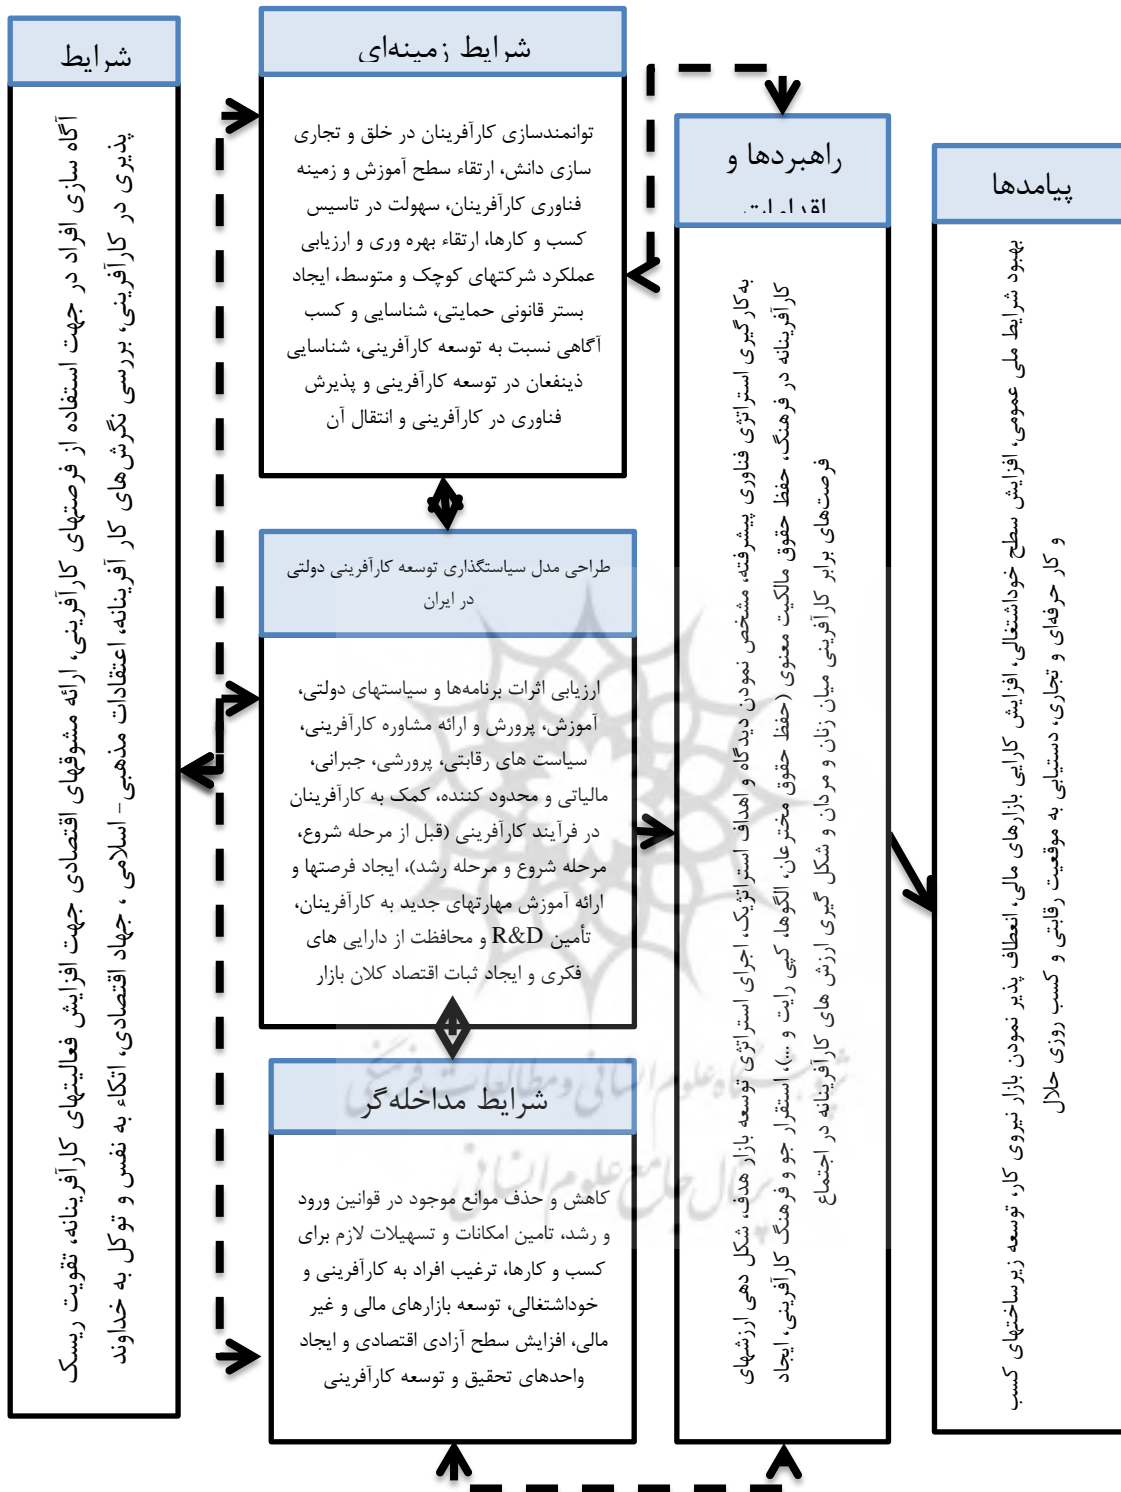 شرایط
آگاه سازی افراد در جهت استفاده از فرصتهای کارآفرینی، ارائه مشوقهای اقتصادی جهت افزایش فعالیتهای کارآفرینانه، تقویت ریسک
پذیری در کارآفرینی، بررسی نگرش‌های کار آفرینانه، اعتقادات مذهبی- اسلامی ، جهاد اقتصادی، اتکاء به نفس و توکل به خداوند
شرایط زمینه‌ای
توانمندسازی کارآفرینان در خلق و تجاری
سازی دانش، ارتقاء سطح آموزش و زمینه
فناوری کارآفرینان، سهولت در تاسیس
کسب و کارها، ارتقاء بهره وری و ارزیابی
عملکرد شرکتهای کوچک و متوسط، ایجاد
بستر قانونی حمایتی، شناسایی و کسب
آگاهی نسبت به توسعه کارآفرینی، شناسایی
ذینفعان در توسعه کارآفرینی و پذیرش
فناوری در کارآفرینی و انتقال آن
طراحی مدل سیاستگذاری توسعه کارآفرینی دولتی
در ایران
ارزیابی اثرات برنامه‌ها و سیاستهای دولتی،
آموزش، پرورش و ارائه مشاوره کارآفرینی،
سیاست های رقابتی، پرورشی، جبرانی،
مالیاتی و محدود کننده، کمک به کارآفرینان
در فرآیند کارآفرینی (قبل از مرحله شروع،
مرحله شروع و مرحله رشد)، ایجاد فرصتها و
ارائه آموزش مهارتهای جدید به کارآفرینان،
تأمین R&D و محافظت از دارایی های
فکری و ایجاد ثبات اقتصاد کلان بازار
شرایط مداخله‌گر
کاهش و حذف موانع موجود در قوانین ورود
و رشد، تامین امکانات و تسهیلات لازم برای
کسب و کارها، ترغیب افراد به کارآفرینی و
خوداشتغالی، توسعه بازارهای مالی و غیر
مالی، افزایش سطح آزادی اقتصادی و ایجاد
واحدهای تحقیق و توسعه کارآفرینی
راهبردها و
اقدامات
به‌کارگیری استراتژی فناوری پیشرفته، مشخص نمودن دیدگاه و اهداف استراتژیک، اجرای استراتژی توسعه بازار هدف، شکل دهی ارزشهای
کارآفرینانه در فرهنگ، حفظ حقوق مالکیت معنوی (حفظ حقوق مخترعان، الگوها، کپی رایت و ...)، استقرار جو و فرهنگ کارآفرینی، ایجاد
فرصت‌های برابر کارآفرینی میان زنان و مردان و شکل گیری ارزش های کارآفرینانه در اجتماع
پیامدها
بهبود شرایط ملی عمومی، افزایش سطح خوداشتغالی، افزایش کارایی بازارهای مالی، انعطاف پذیر نمودن بازار نیروی کار، توسعه زیرساختهای کسب
و کار حرفه‌ای و تجاری، دستیابی به موقعیت رقابتی و کسب روزی حلال
پژوهشگاه علوم انسانی و مطالعات فرهنگی
پرتال جامع علوم انسانی